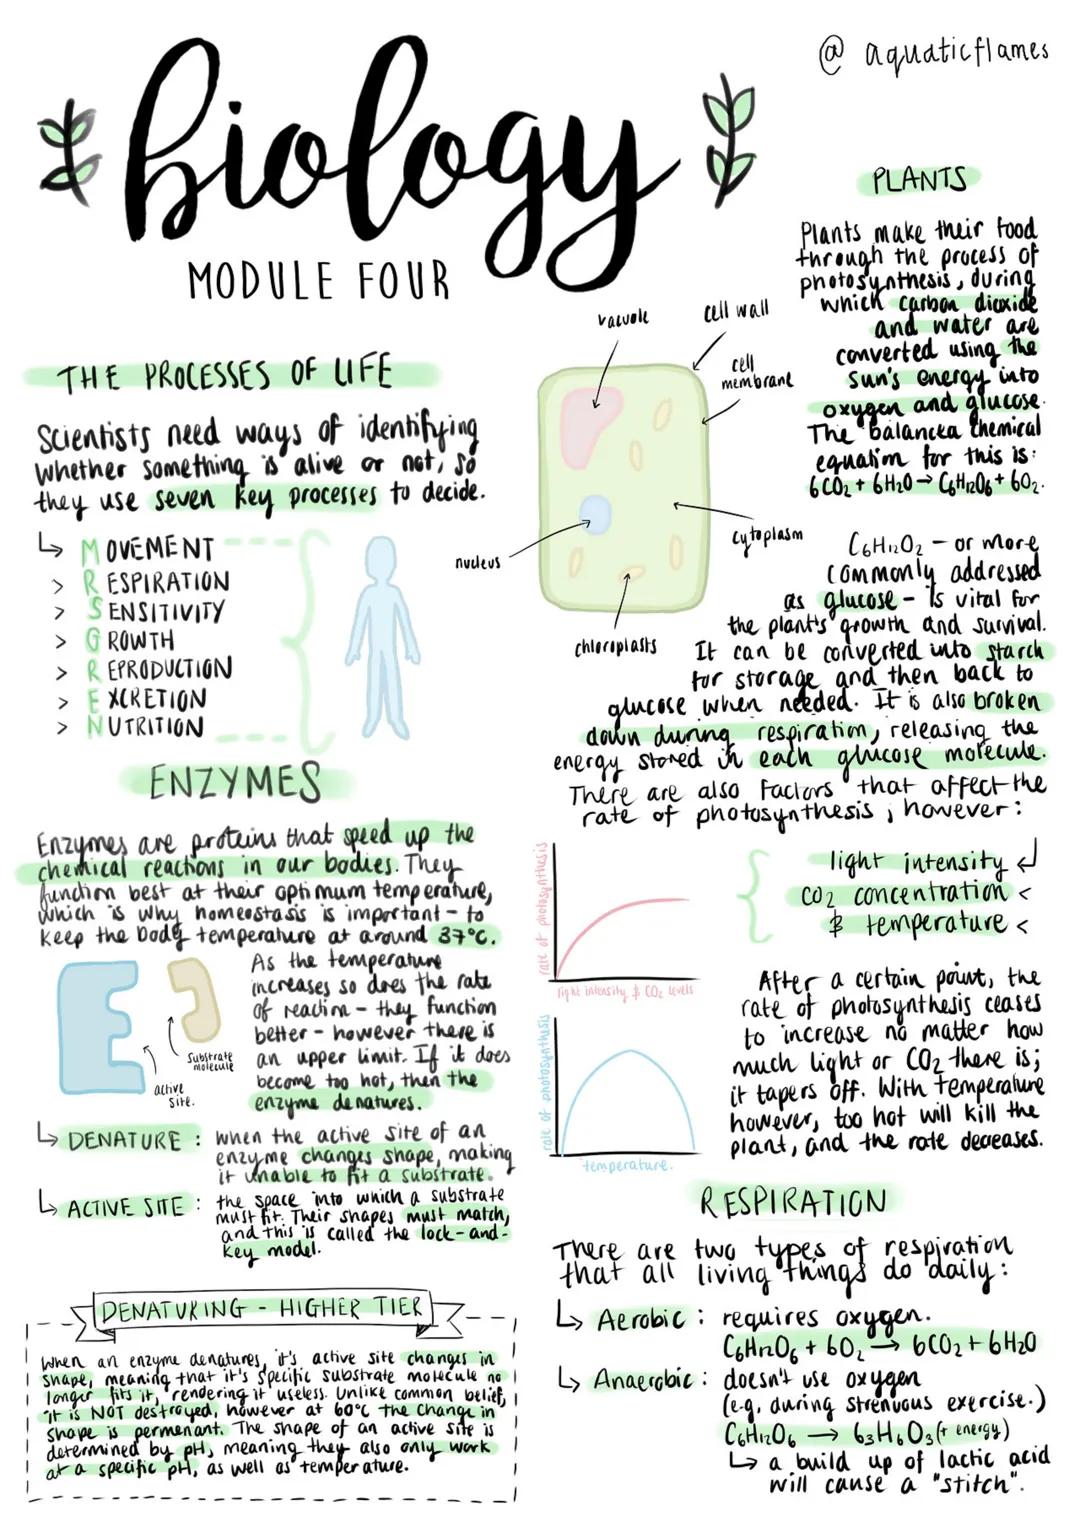 @ aquaticflames
biology
MODULE FOUR
THE PROCESSES OF LIFE
Scientists need ways of identifying
whether something is alive or not, so
they use seven key processes to decide.
↳ MOVEMENT
> RESPIRATION
> SENSITIVITY
> GROWTH
> REPRODUCTION
> EXCRETION
> NUTRITION
ENZYMES
Enzymes are proteins that speed up the
chemical reactions in our bodies. They
function best at their optimum temperature,
which is why homeostasis is important - to
keep the body temperature at around 37°C.
As the temperature
increases so does the rate
of reaction - they function
better - however there is
an upper limit. If it does
become too hot, then the
enzyme denatures.
Substrate
molecule
active
site.
↳ DENATURE : when the active site of an
enzyme changes shape, making
it unable to fit a substrate.
↳ ACTIVE SITE : the space into which a substrate
must fit. Their shapes must match,
and this is called the lock-and-
key model.
DENATURING - HIGHER TIER
When an enzyme denatures, it's active site changes in
shape, meaning that it's specific substrate molecule no
longer fits it, rendering it useless. Unlike common belief,
it is NOT destroyed, however at 60°C the change in
shape is permenant. The shape of an active site is
determined by pH, meaning they also only work
at a specific pH, as well as temperature.
vacuole
cell wall
cell
membrane
cytoplasm
nucleus
chloroplasts
PLANTS
Plants make their food
through the process of
photosynthesis, during
which carbon dioxide
and water are
converted using the
sun's energy into
oxygen and glucose.
The balanced chemical
equation for this is:
6CO2 + 6H2O → C6H12O6 + 6O2.
C6H12O2 - or more
commonly addressed
as glucose - is vital for
the plant's growth and survival.
It can be converted into starch
for storage and then back to
glucose when needed. It is also broken
down during respiration, releasing the
energy stored in each glucose molecule.
There are also factors that affect the
rate of photosynthesis ; however :
light intensity ↲
CO2 concentration <
& temperature <
rate of photosynthesis
light intensity & CO2 levels
rate of photosynthesis
temperature.
After a certain point, the
rate of photosynthesis ceases
to increase no matter how
much light or CO2 there is;
it tapers off. With temperature
however, too hot will kill the
plant, and the rate decreases.
RESPIRATION
There are two types of respiration
that all living things do daily :
↳ Aerobic : requires oxygen.
C6H12O6 + 6O2 → 6CO2 + 6H2O
↳ Anaerobic : doesn't use oxygen
(e.g. during strenuous exercise.)
C6H12O6 → 63H6O3 (+ energy)
↳ a build up of lactic acid
will cause a "stitch".